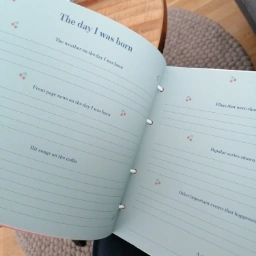 The day I was born
The weather on the day I was born
Front page news on the day I was born
Hit songs on the radio
Popular
Other important events that happened